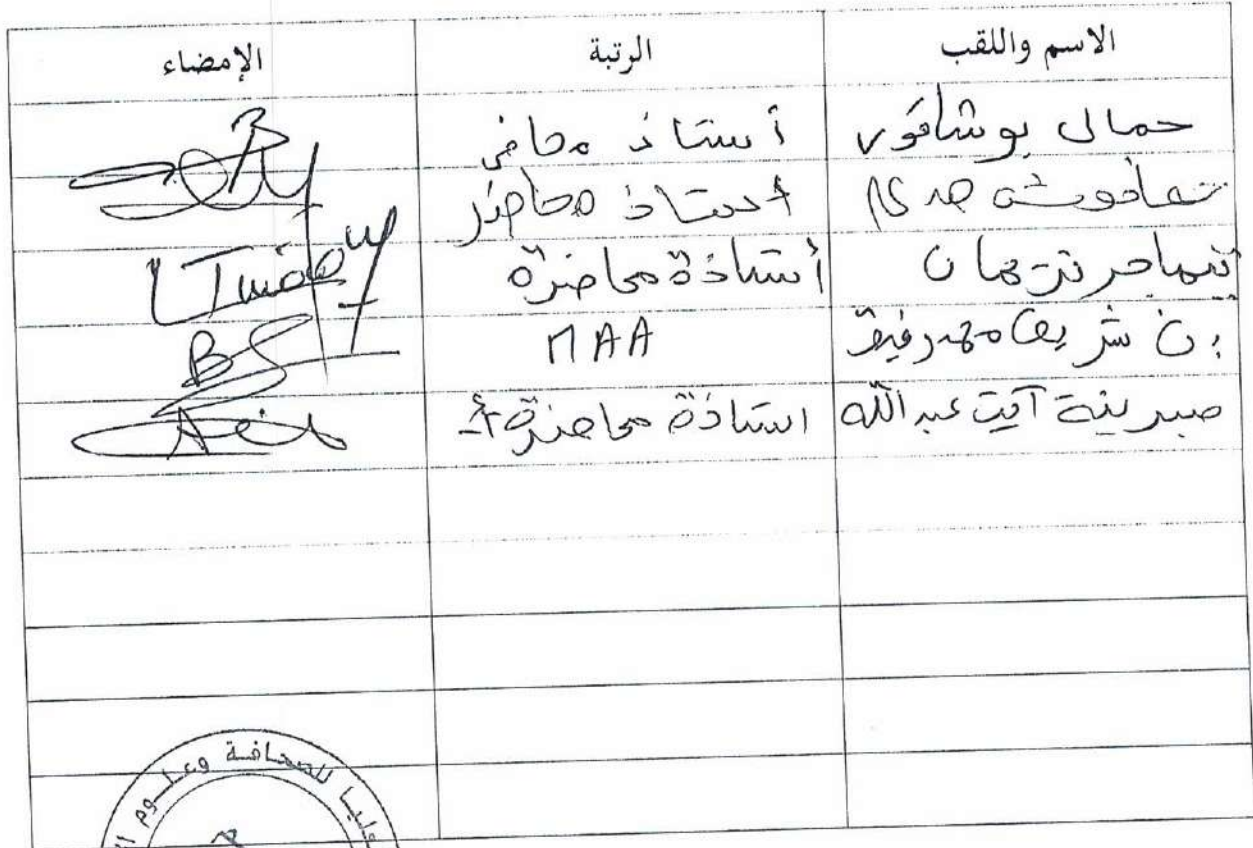 الاسم واللقب الرتبة الإمضاء
جمال بوشاقور أستاذ محاضر
أستاذ محاضر
نريمان أستاذة محاضرة
بن شريف محمد رفيق MAA
صبرينة آيت عبد الله استاذة محاضرة أ-
وليا للصحافة وعلوم ال